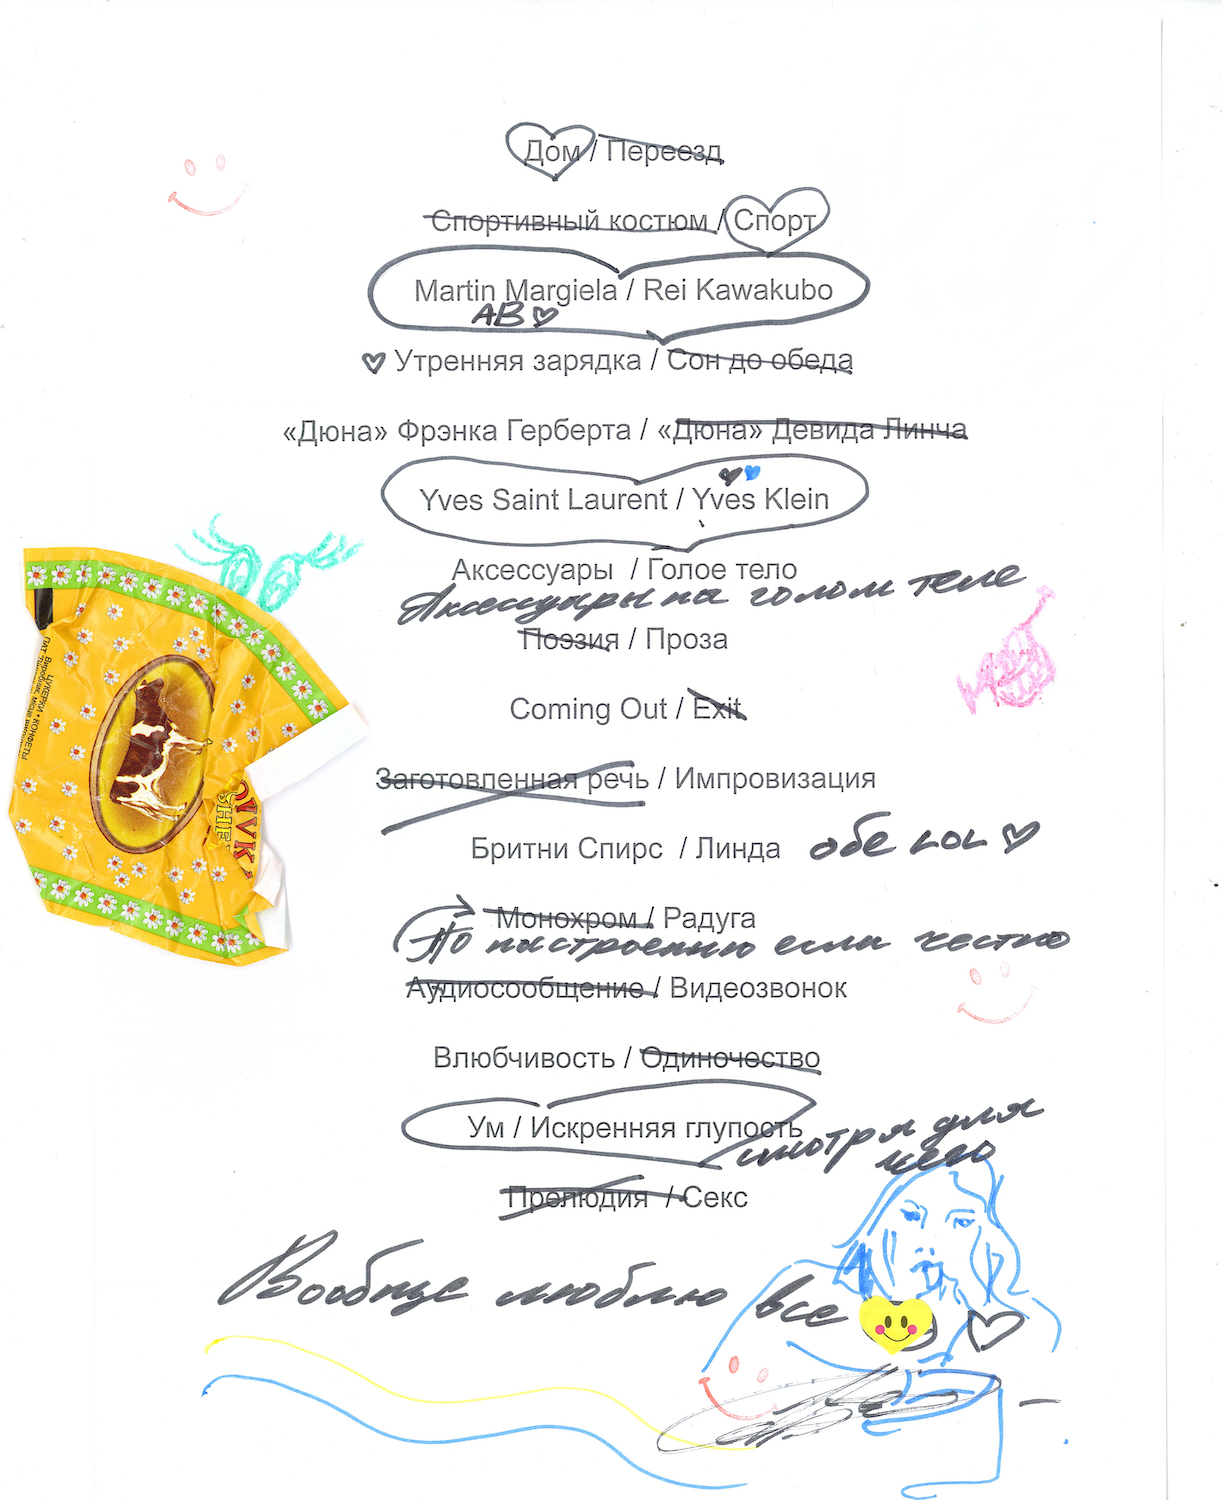 Дом / Переезд
Спортивный костюм / Спорт
Martin Margiela / Rei Kawakubo
АВ
Утренняя зарядка / Сон до обеда
«Дюна» Фрэнка Герберта / «Дюна» Девида Линча
Yves Saint Laurent / Yves Klein
Аксессуары / Голое тело
Аксессуары на голом теле
Поэзия / Проза
Coming Out / Exit
Заготовленная речь / Импровизация
Бритни Спирс / Линда обе LOL
Монохром / Радуга
По настроению если честно
Аудиосообщение / Видеозвонок
Влюбчивость / Одиночество
Ум / Искренняя глупость
смотря для
чего
Прелюдия / Секс
Вообще люблю все
ЦУКЕРКИ • КОНФЕТЫ